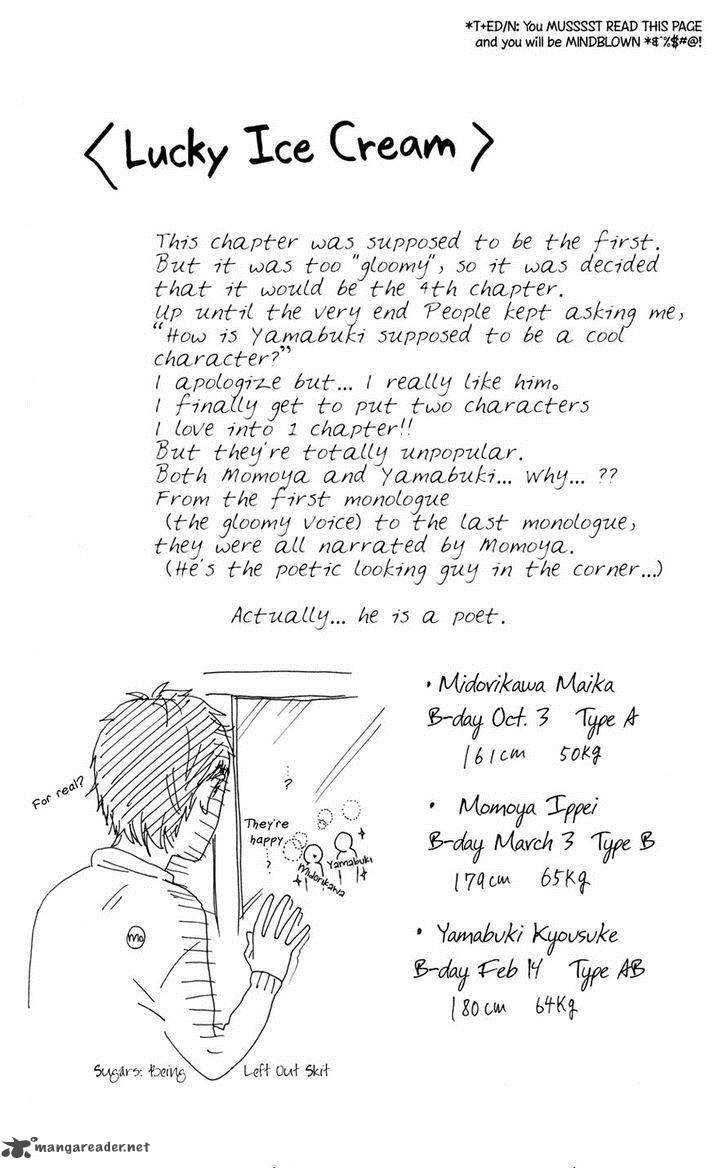 *T+ED/N: You MUSSSST READ THIS PAGE
and you will be MINDBLOWN *&^%$#@!
<Lucky Ice Cream>
This chapter was supposed to be the first.
But it was too "gloomy", so it was decided
that it would be the 4th chapter.
Up until the very end People kept asking me,
"How is Yamabuki supposed to be a cool
character?"
I apologize but... I really like him.
I finally get to put two characters
I love into 1 chapter!!
But they're totally unpopular.
Both Momoya and Yamabuki... Why... ??
From the first monologue
(the gloomy voice) to the last monologue,
they were all narrated by Momoya.
(He's the poetic looking guy in the corner...)
Actually... he is a poet.
For real?
?
They're
happy
?
Midorikawa
Yamabuki
Mo
Sugars: Being Left Out Skit
• Midorikawa Maika
B-day Oct. 3 Type A
161cm 50kg
• Momoya Ippei
B-day March 3 Type B
179cm 65kg
• Yamabuki Kyousuke
B-day Feb 14 Type AB
180cm 64kg
mangareader.net